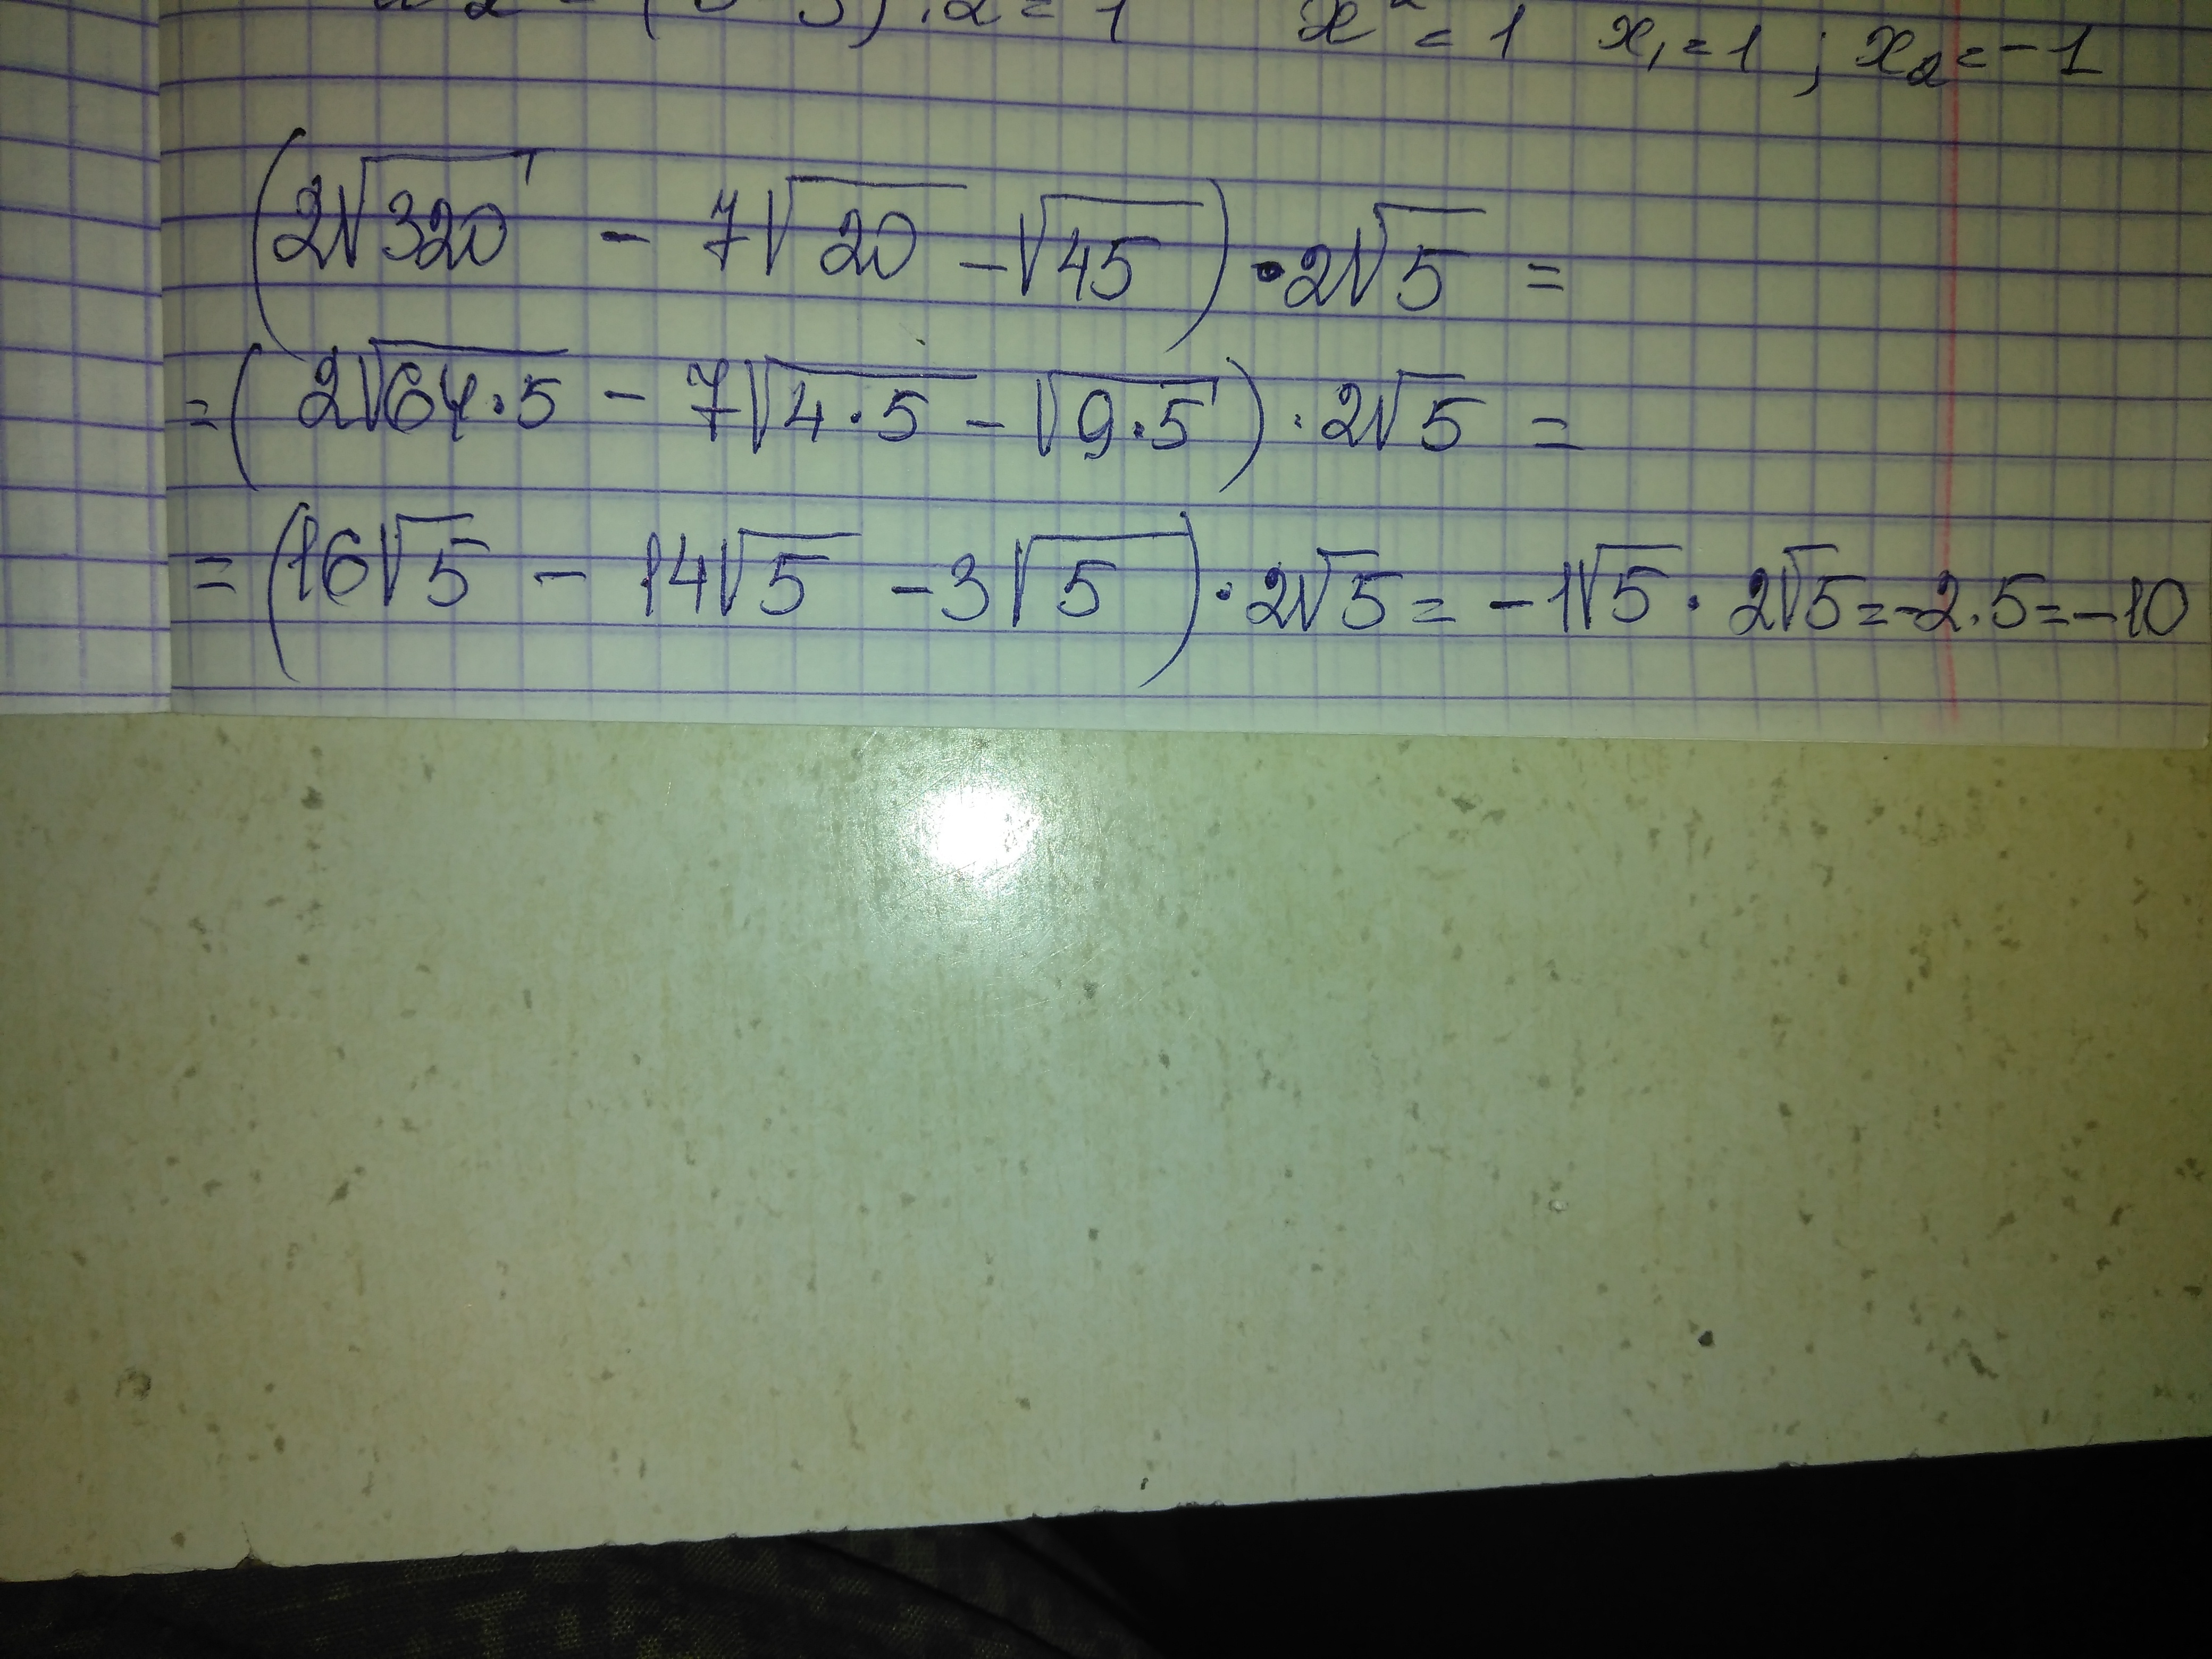 x² = 1 x₁ = 1 ; x₂ = -1
(2√320 - 7√20 - √45) · 2√5 =
= (2√64·5 - 7√4·5 - √9·5) · 2√5 =
= (16√5 - 14√5 - 3√5) · 2√5 = -1√5 · 2√5 = -2·5 = -10